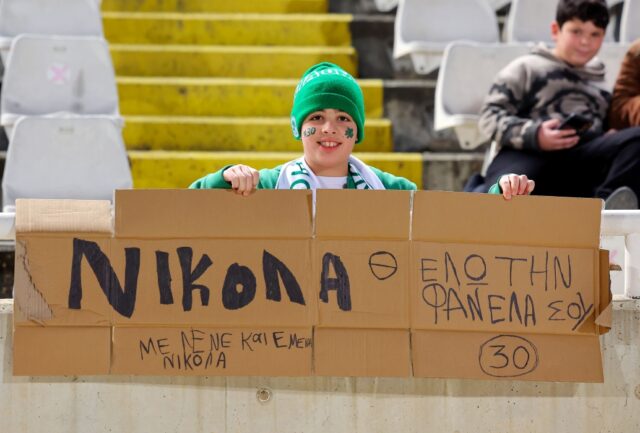 ΝΙΚΟΛΑ Θ ΕΛΩ ΤΗΝ
ΦΑΝΕΛΑ ΣΟΥ
30
ΜΕ ΛΕΝΕ ΚΑΙ ΕΜΕΝΑ
ΝΙΚΟΛΑ